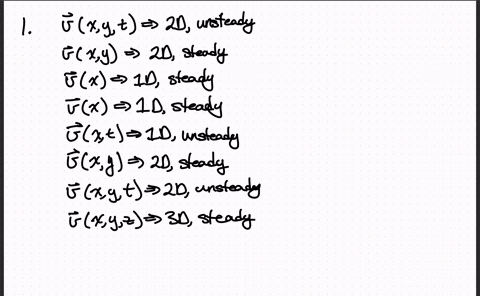 1. v⃗(x,y,t) ⇒ 2D, unsteady
v⃗(x,y) ⇒ 2D, steady
v⃗(x) ⇒ 1D, steady
v⃗(x) ⇒ 1D, steady
v⃗(x,t) ⇒ 1D, unsteady
v⃗(x,y) ⇒ 2D, steady
v⃗(x,y,t) ⇒ 2D, unsteady
v⃗(x,y,z) ⇒ 3D, steady